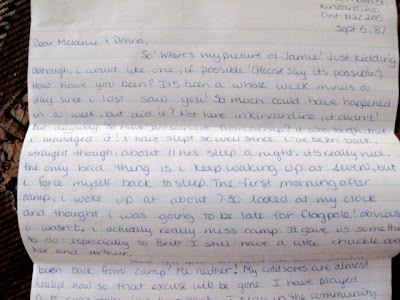 Kincardine
Ont N2Z 2R5
Sept 5, 87
Dear Melanie & Donna,
So! Where's my picture of Jamie! Just kidding
although, i would like one, if possible! (Please say its possible!)
How have you been? It's been a whole week minus a
day since i last saw you! So much could have happened
in a week, but did it? Not here in Kincardine, it didn't!
But anyway. So have you
camp? it was tough, but
i managed it! i have slept so well since i've been back.
straight though. about 11 hrs sleep a night. it's really nice.
the only bad thing is i keep waking up at seven, but
i force myself back to sleep. The first morning after
camp, i woke up at about 7:30 looked at my clock
and thought i was going to be late for flagpole! obviously
i wasn't. i actually really miss camp. It gave us something
to do. especially to Britt I still have a little chuckle over
her and arthur.
been back from camp! Me neither! My coldsores are almost
healed now so that excuse will be gone. I have played
in the community